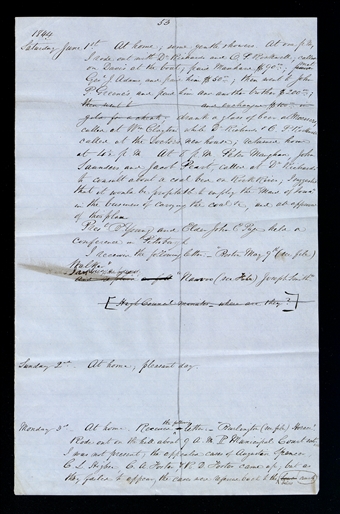 53
1844
Saturday June 1st At home, some gentle showers. At one p.m.
I rode out with Dr Richards and O. P. Rockwell, called
on Davis at the boat; paid Manhard $90
Geo. J. Adams and paid him $50; then went to John
P. Greene's and paid him another $200;
then went to and exchanged $100
gold for drank a glass of beer at Moessers
called at Wm Clayton's while Dr Richards & O. P. Rockwell
called at the Doctor's new house; returned home
at 4½ p.m. At 8 p.m. Peter Maughan, John
Saunders and Jacob Peart, called at Dr Richards'
to consult about a coal bed on Rock River, I suggested
that it would be profitable to employ the Maid of Iowa
in the business of carrying the coal &c, and all approved
of this plan.
Pres. B. Young and Elder John E. Page held a
Conference in Pittsburgh
I received the following letter - "Boston May 9th (see file)
Nauvoo (see file) Joseph Smith
[High Council minutes - where are they?]
Sunday 2nd At home, pleasant day.
Monday 3rd At home. Received the following letter - "Burlington (see file)
Rode out on the hill about 9 A.M. Municipal Court
I was not present; the appeal cases of Augustine Spencer
C. L. Higbee, C. A. Foster & R. D. Foster came up, but as
they failed to appear the cases were referred back to the court